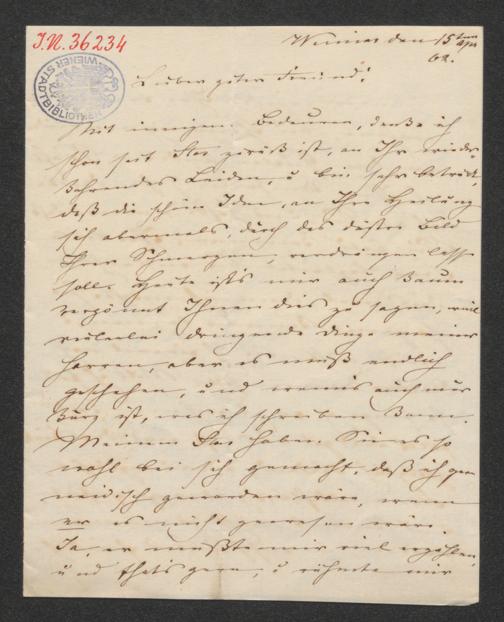 J.N. 36234
WIENER STADTBIBLIOTHEK
Weimar den 15ten Apr
62.
Lieber guter Freund!
Mit innigem Bedauern, denke ich
schon seit zurück ist, an Ihr wieder-
kehrendes Leiden, u bin sehr betrübt,
daß die schöne Idee, an Ihre Heilung
sich abermals, durch das düstre Bild
Ihrer Schmerzen, verdrängen lassen
soll. Heute ist's mir auch kaum
vergönnt Ihnen dies zu sagen, weil
vielerlei dringende Dinge meiner
harren, aber es muß endlich
geschehen, und wenn's auch nur
kurz ist, was ich schreiben kann.
Meinem haben Sie es so
wohl bei sich gemacht, daß ich ganz
neidisch geworden wäre, wenn
er es nicht gewesen wäre.
Ja, er mußte mir viel erzählen,
und that's gern, u rühmte mir